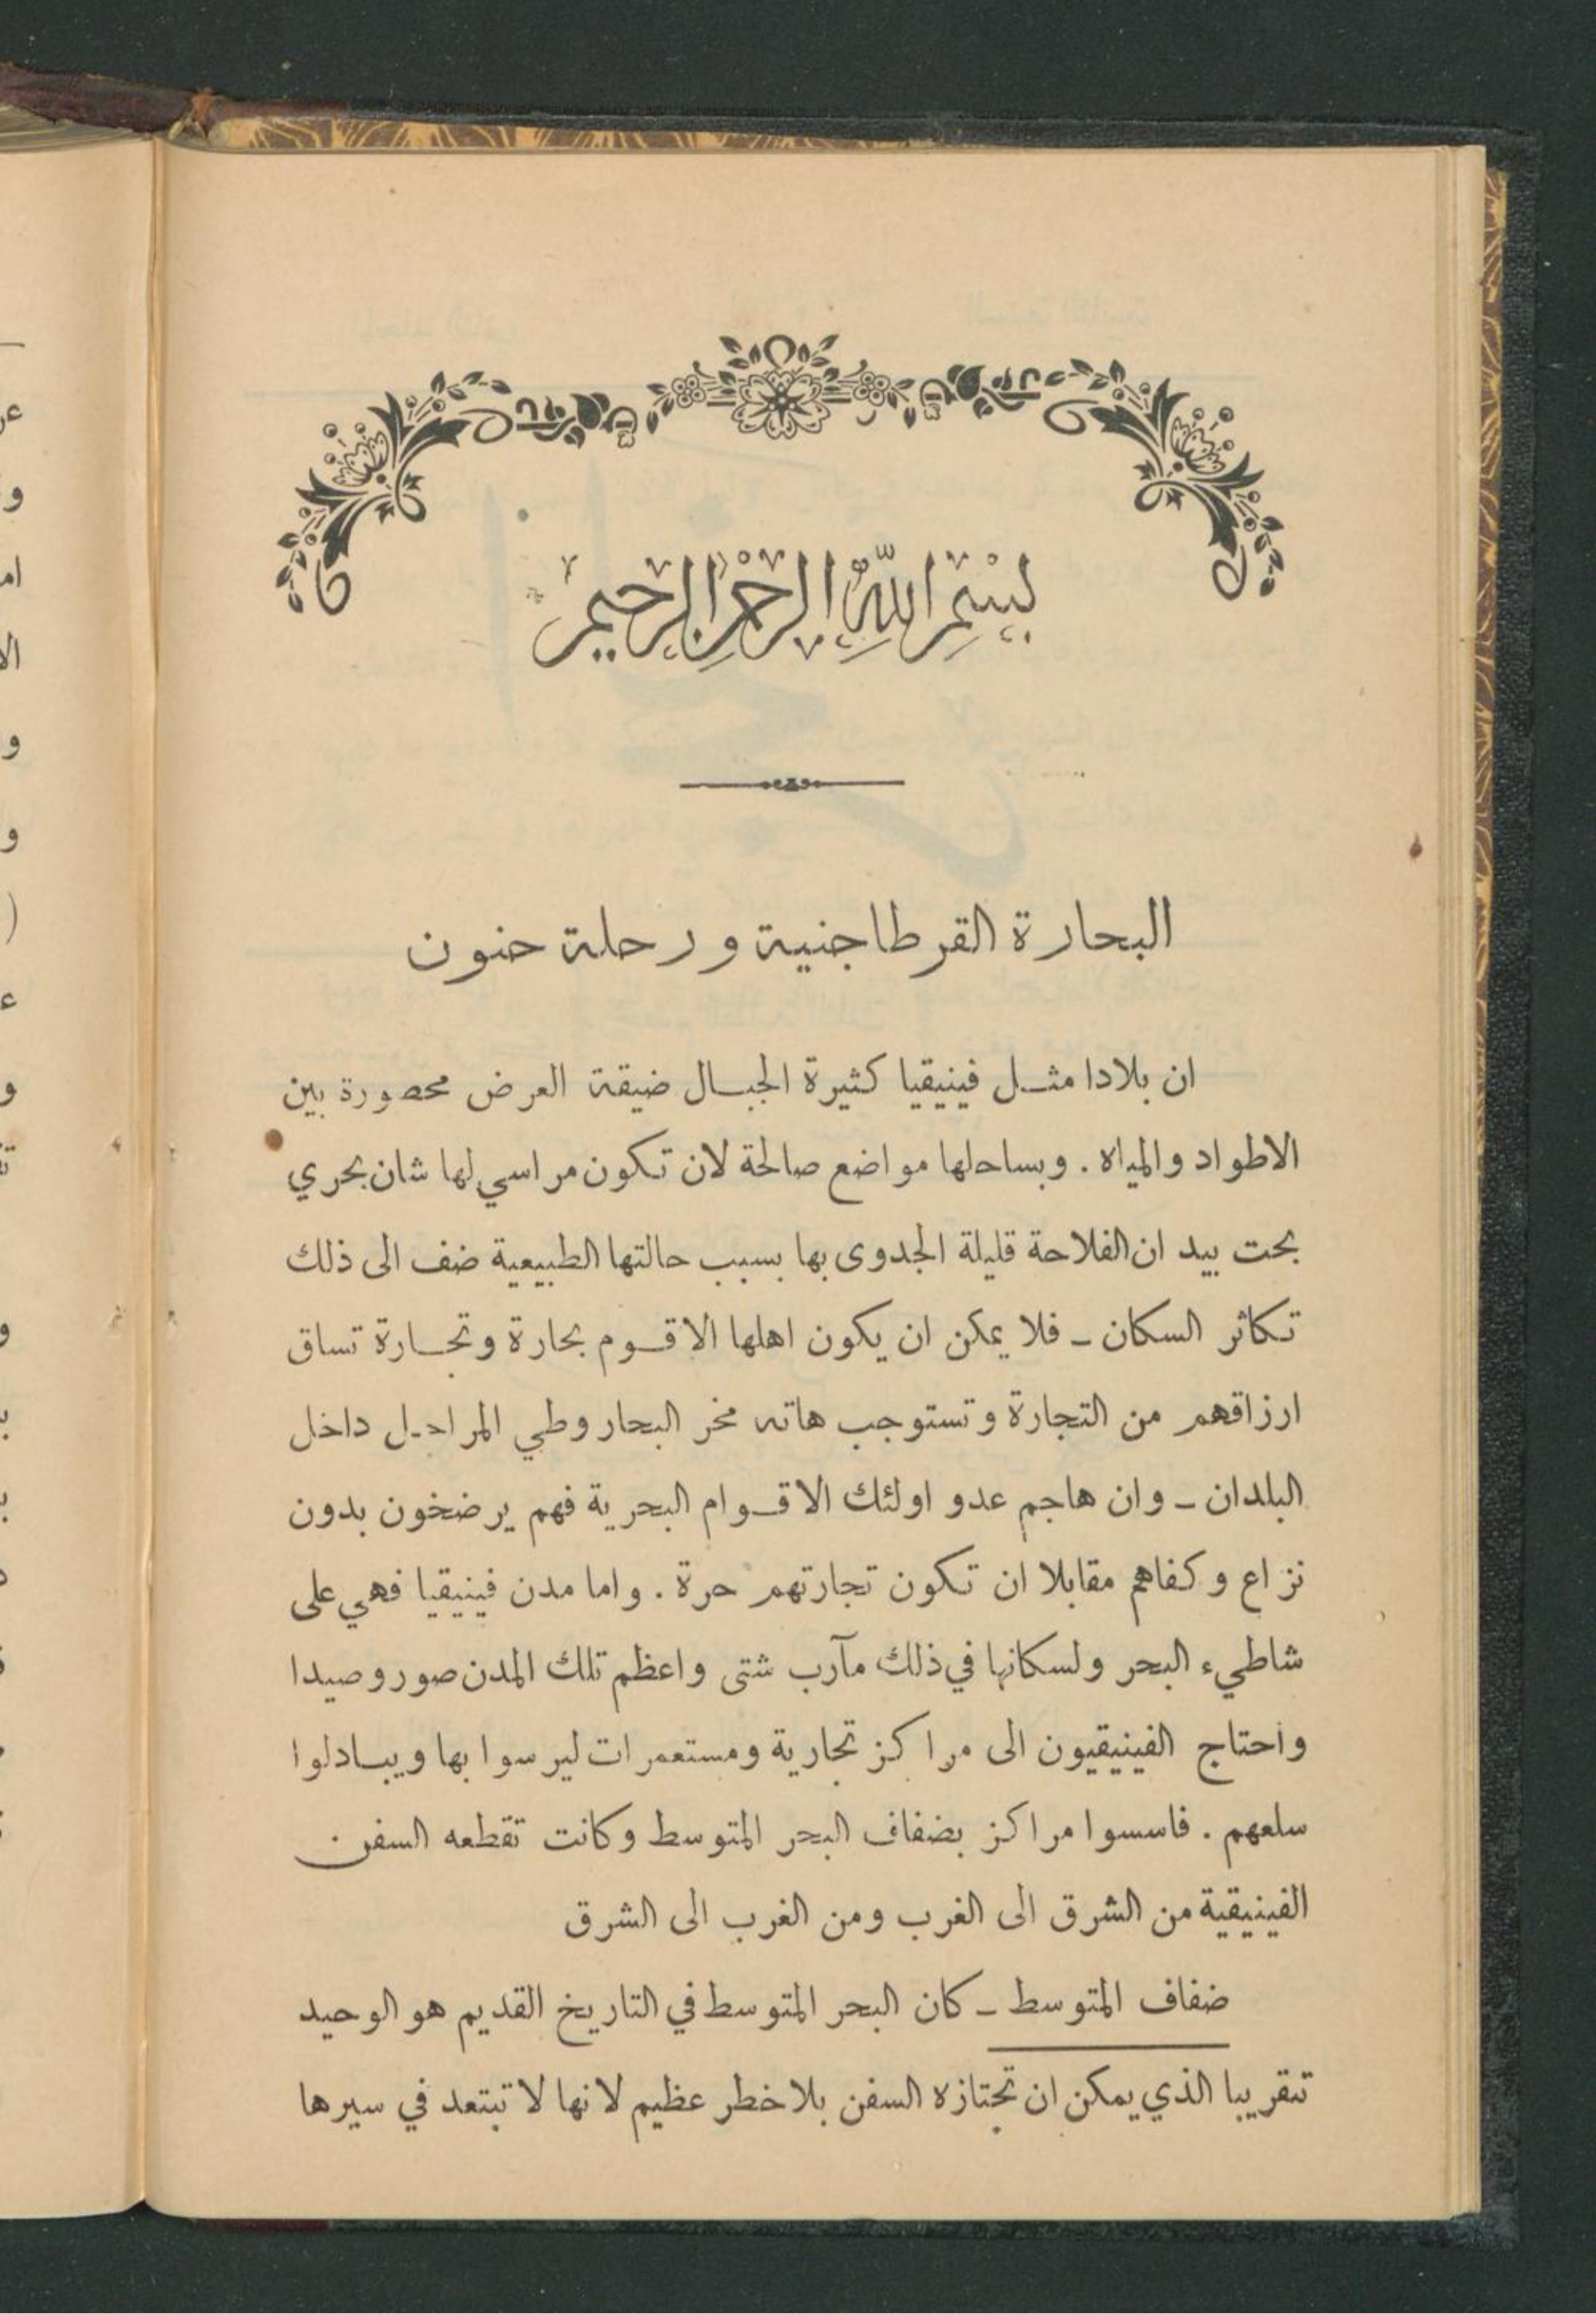 بسم الله الرحمن الرحيم
البحارة القرطاجنية ورحلة حنون
ان بلادا مثل فينيقيا كثيرة الجبال ضيقة العرض محصورة بين
الاطواد والمياه . وبساحلها مواضع صالحة لان تكون مراسي لها شان بحري
بحت بيد ان الفلاحة قليلة الجدوى بها بسبب حالتها الطبيعية ضف الى ذلك
تكاثر السكان – فلا يمكن ان يكون اهلها الا قوم بحارة وتجارة تساق
ارزاقهم من التجارة وتستوجب هاته مخر البحار وطي المراحل داخل
البلدان – وان هاجم عدو اولئك الاقوام البحرية فهم يرضخون بدون
نزاع وكفاهم مقابلا ان تكون تجارتهم حرة . واما مدن فينيقيا فهي على
شاطيء البحر ولسكانها في ذلك مآرب شتى واعظم تلك المدن صور وصيدا
واحتاج الفينيقيون الى مراكز تجارية ومستعمرات ليرسوا بها ويبادلوا
سلعهم . فاسسوا مراكز بضفاف البحر المتوسط وكانت تقطعه السفن
الفينيقية من الشرق الى الغرب ومن الغرب الى الشرق
ضفاف المتوسط – كان البحر المتوسط في التاريخ القديم هو الوحيد
تقريبا الذي يمكن ان تجتازه السفن بلا خطر عظيم لانها لا تبتعد في سيرها